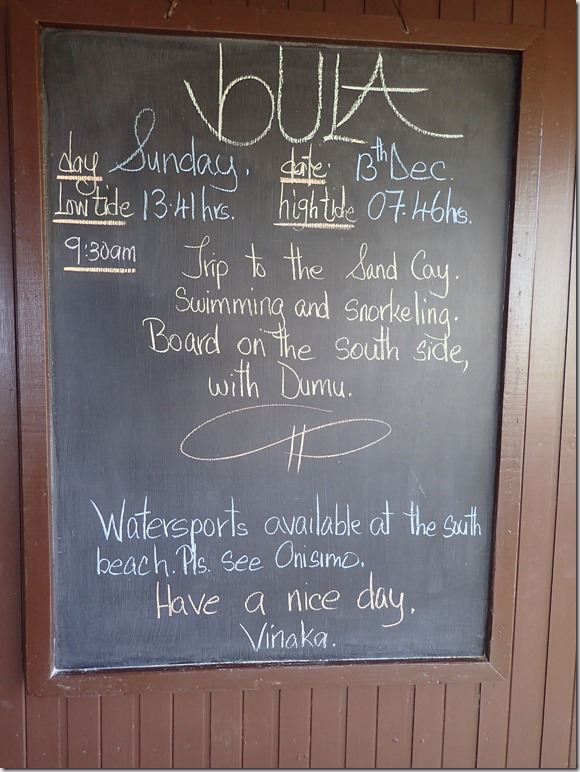 bULA
day Sunday. date: 13th Dec.
Low tide 13:41hrs. high tide 07:46hrs.
9:30am Trip to the Sand Cay.
Swimming and snorkeling.
Board on the south side,
with Dumu.
Watersports available at the south
beach. Pls. see Onisimo.
Have a nice day.
Vinaka.